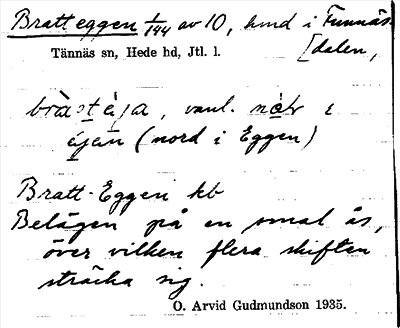 Bratteggen 1/144 av 10, hmd i Funnäs
[dalen,
Tännäs sn, Hede hd, Jtl. l.
vanl. i
(nord i Eggen)
Bratt-Eggen kb
Belägen på en smal ås,
över vilken flera skiften
sträcka sig.
O. Arvid Gudmundson 1935.